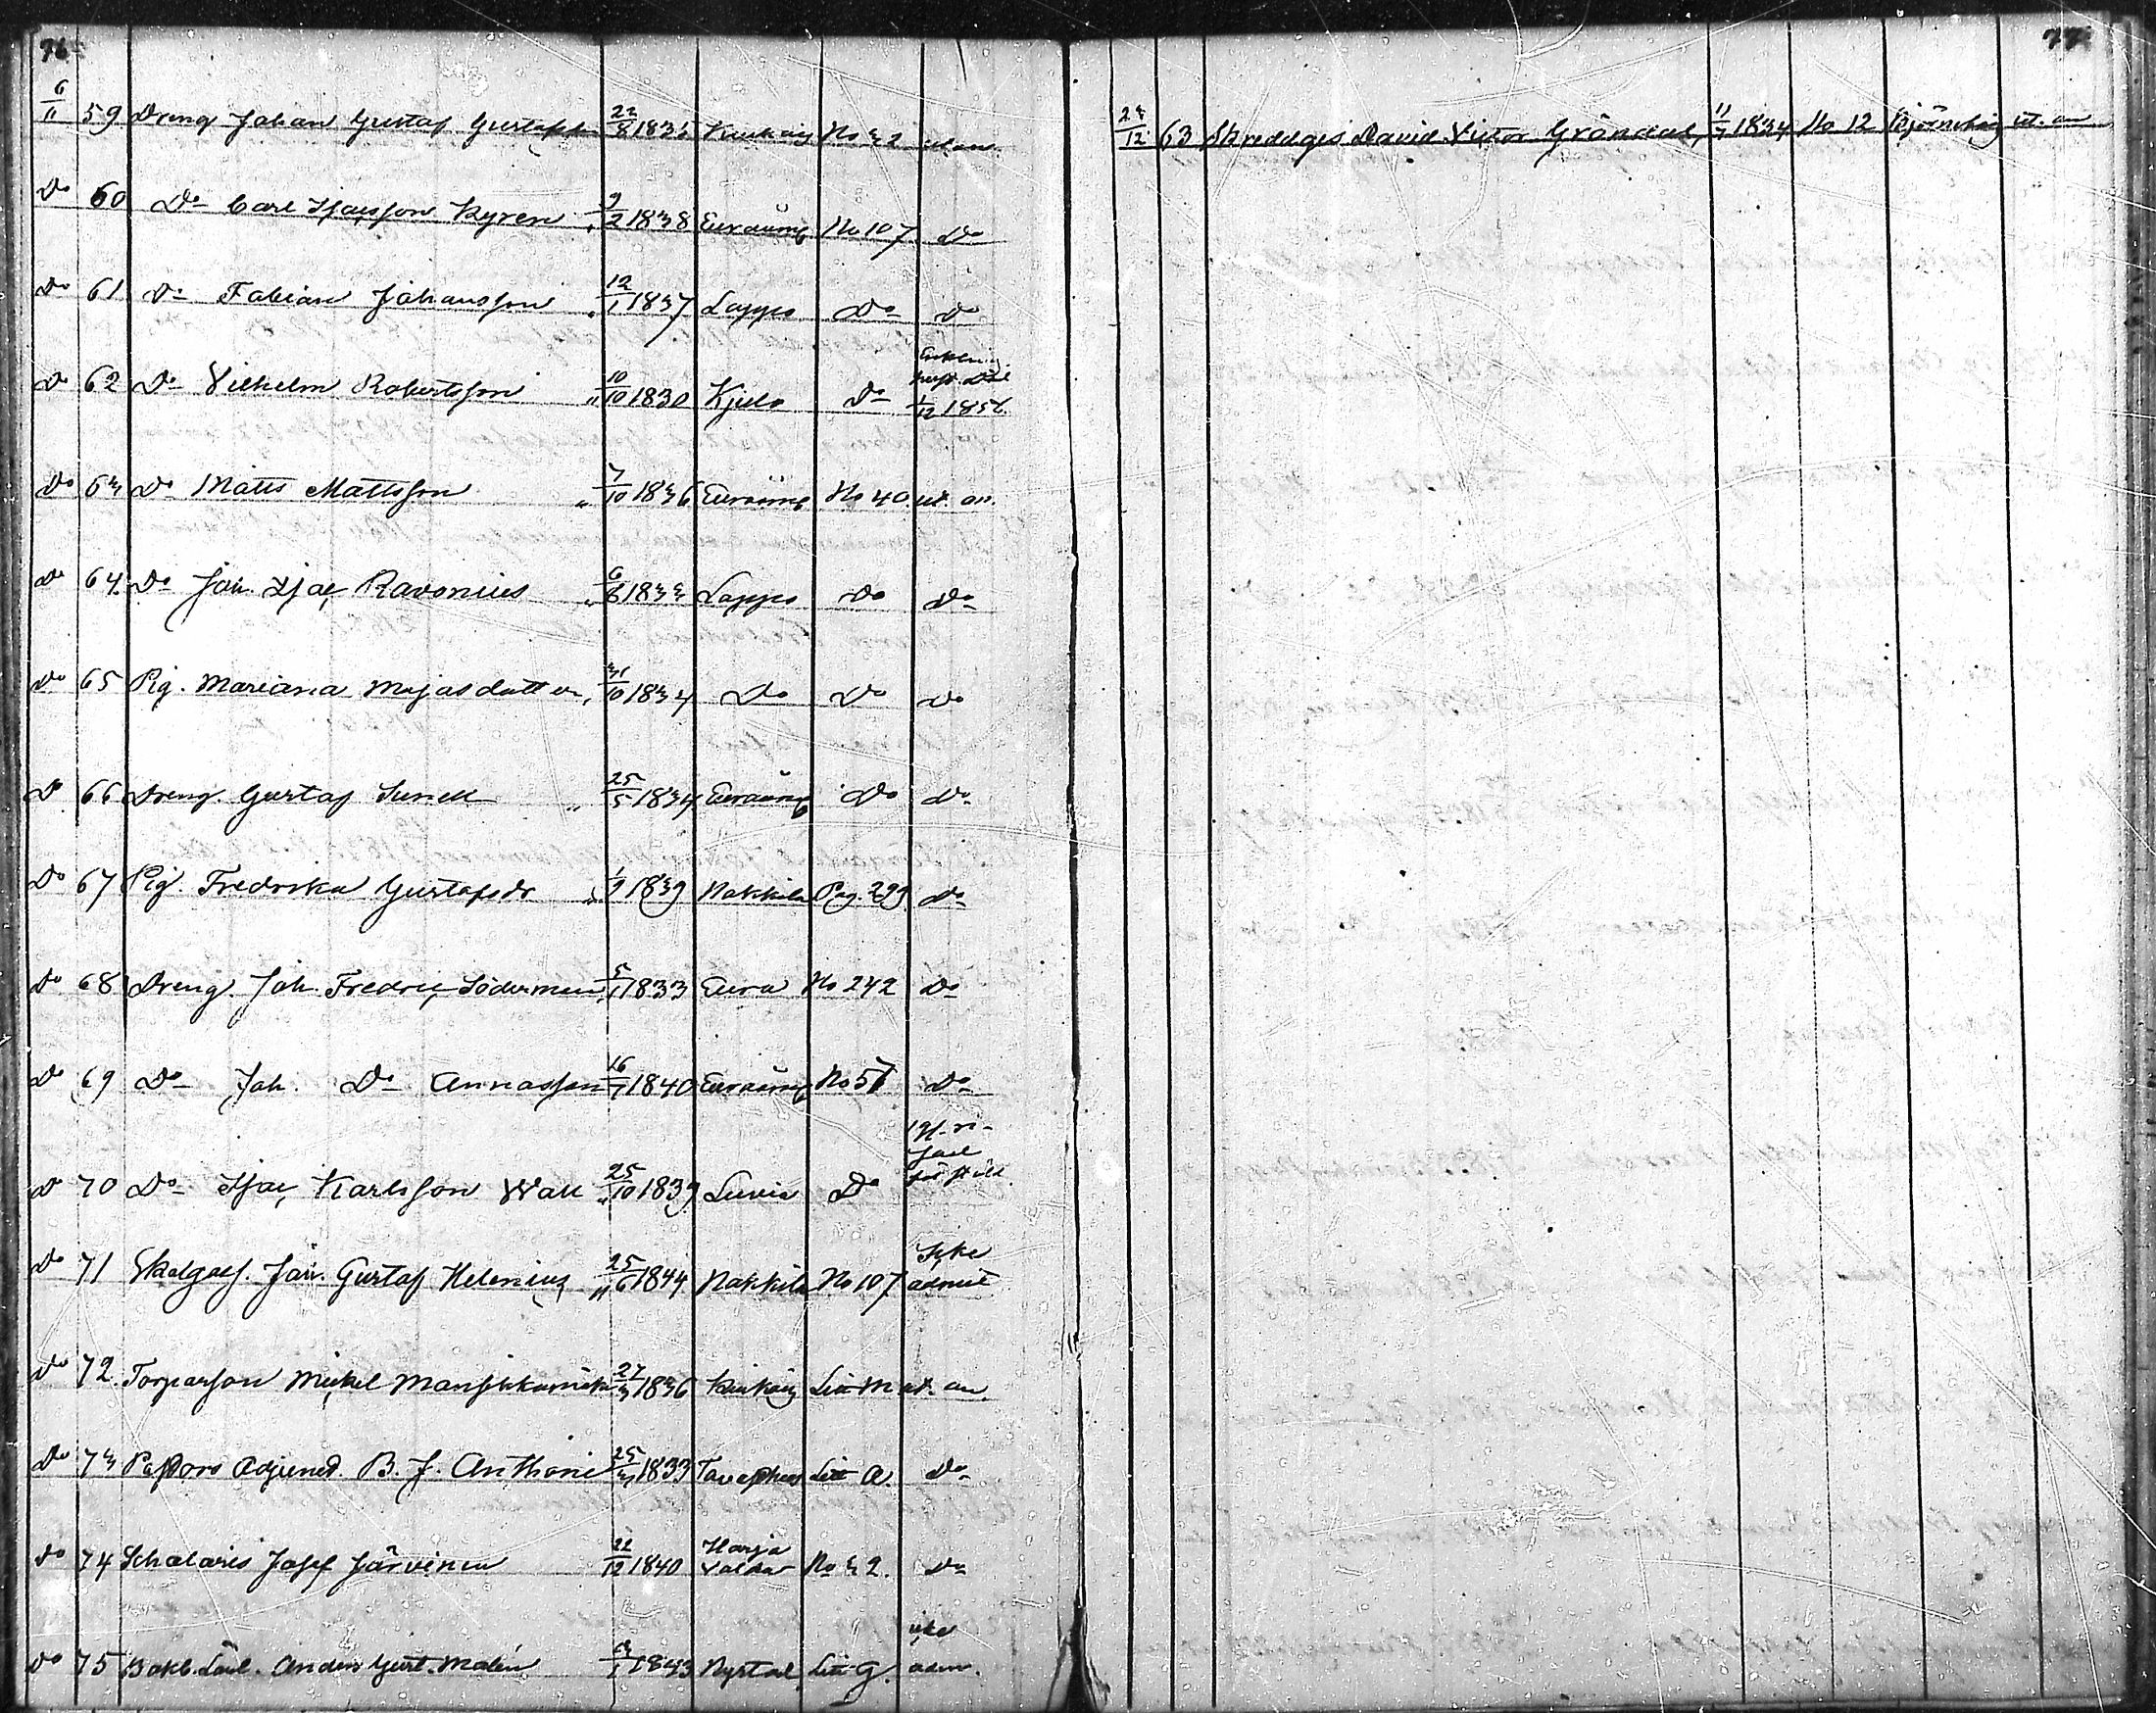 76
6/11 59 Dreng Johan Gustaf Gustafsson 22/8 1835 Kiukais No 32 ut. an.
Do 60 Do Carl Isacsson Kyren " 9/2 1838 Euraåmb No 107 Do
Do 61 Do Fabian Johansson " 12/1 1837 Lappo Do Do
Do 62 Do Vilhelm Robertsson " 10/10 1830 Kjulo Do 1/12 1858
Do 63 Do Matts Mattsson " 7/10 1836 Euraåmb No 40 ut. an.
Do 64 Do Joh. Isac Ravonius " 6/8 1833 Lappo Do Do
Do 65 Pig. Mariana Majasdotter " 31/10 1834 Do Do Do
Do 66 Dreng. Gustaf Sunell " 25/5 1834 Euraåmb Do Do
Do 67 Pig. Fredrika Gustafsdr " 1/9 1839 Nakkila Pag. 299 Do
Do 68 Dreng. Joh. Fredric Söderman 5/1 1833 Eura No 242 Do
Do 69 Do Joh. Do Annasson 16/7 1840 Euraåmb No 57 Do
Do 70 Do Isac Karlsson Wall " 25/10 1839 Luvia Do
Do 71 Joh. Gustaf Helenius " 25/6 1844 Nakkila No 107 Icke admit
Do 72 Torparson Mickel 27/3 1836 Kiukais Litt M ut. an.
Do 73 Pastors Adjunct. B. J. Anthoni 25/3 1833 Tavasthus Litt A. Do
Do 74 Scholaris Josef Järvinen 22/12 1840 Harjavalda No 32. Do
Do 75 Bokb. Lärl. Anders Gust. Malén 1843 Nystad Litt G. icke adm.
77
23/12 63 Skreddges. David Victor Gröndal, 11/7 1834 No 12 Björneborg ut. an